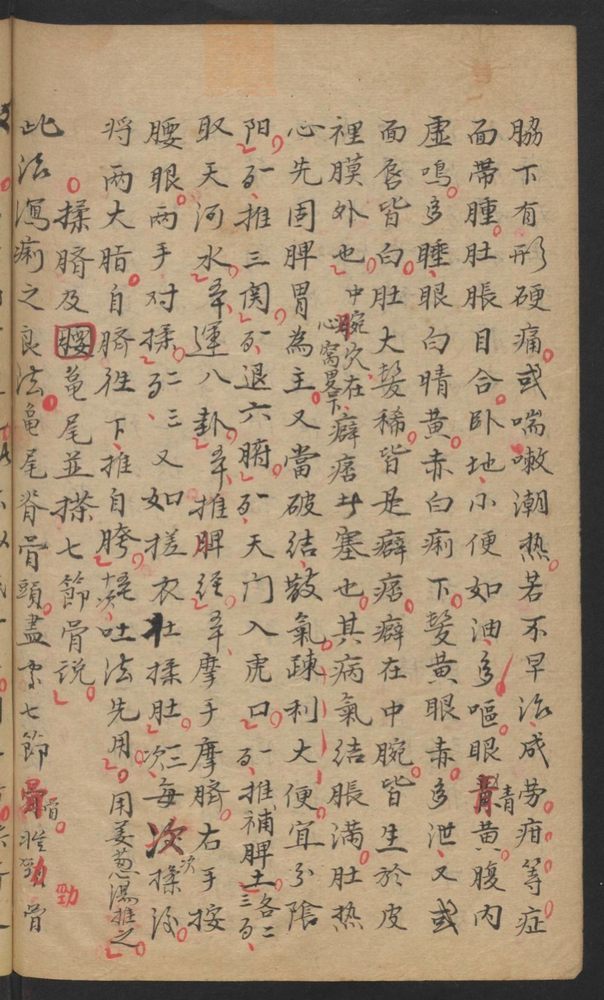 脇下有形硬痛或喘嗽潮熱若不早治成勞疳等症
面帶腫肚脹目合卧地小便如油多嘔眼青黃腹内
虛鳴多睡眼白睛黃赤白痢下髮黃眼赤多泄又或
面唇皆白肚大髮稀皆是癖痞癖在中腕皆生於皮
裡膜外也中腕穴在心窩畧下癖痞皆塞也其病氣結脹滿肚熱
心先固脾胃為主又當破結散氣疎利大便宜分陰
阳二百推三関一百退六腑一百天门入虎口一百推補脾土各二三百
取天河水運八卦推脾經摩手摩臍右手按
腰眼两手对揉二三百又如搓衣壮揉肚二三次每次揉後
将两大指自臍徃下推自胯吐法先用用姜葱湯推之
揉臍及腰龟尾並搽七節骨説
此法瀉痢之良法龟尾脊骨頭盡處七節骨骨脛勁骨